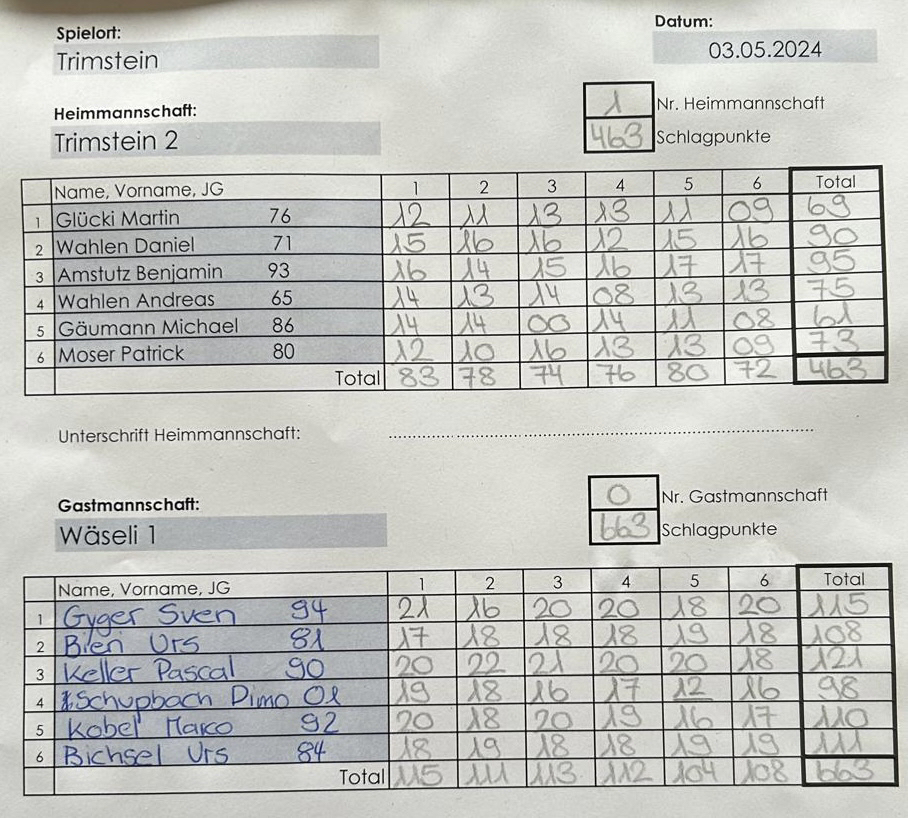 Spielort:
Trimstein
Datum:
03.05.2024
Heimmannschaft:
Trimstein 2
1 Nr. Heimmannschaft
463 Schlagpunkte
Name, Vorname, JG 1 2 3 4 5 6 Total
1 Glücki Martin 76 12 11 13 13 11 09 69
2 Wahlen Daniel 71 15 16 16 12 15 16 90
3 Amstutz Benjamin 93 16 14 15 16 17 17 95
4 Wahlen Andreas 65 14 13 14 08 13 13 75
5 Gäumann Michael 86 14 14 00 14 11 08 61
6 Moser Patrick 80 12 10 16 13 13 09 73
Total 83 78 74 76 80 72 463
Unterschrift Heimmannschaft:
Gastmannschaft:
Wäseli 1
0 Nr. Gastmannschaft
663 Schlagpunkte
Name, Vorname, JG 1 2 3 4 5 6 Total
1 Gyger Sven 94 21 16 20 20 18 20 115
2 Bieri Urs 81 17 18 18 18 19 18 108
3 Keller Pascal 90 20 22 21 20 20 18 121
4 Schupbach Dimo 01 19 18 16 17 12 16 98
5 Kobel Marco 92 20 18 20 19 16 17 110
6 Bichsel Urs 84 18 19 18 18 19 19 111
Total 115 111 113 112 104 108 663